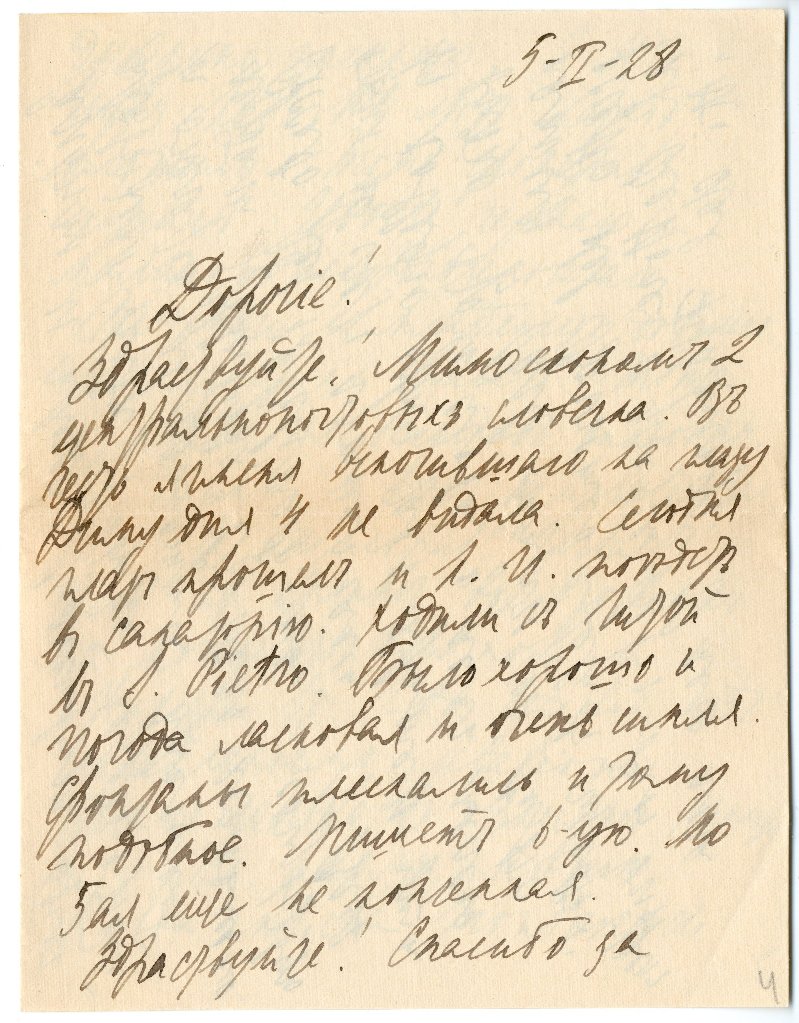 5-II-28
Дорогіе!
Здраствуйте! Мимоскокамъ 2
центральнопочтовыхъ словечка. Въ
честь ячменя вскочившаго на глазу
Диму дня 4 не видала. Сегодня
прошелъ и Л. И. поѣдетъ
въ санаторію. Ходили съ
въ S. Pietro. Было хорошо и
погода ласковая и очень синяя.
Фонтаны плескались и тому
подобное. Пишетъ 6-ую. Но
5ая еще не конченная.
Здраствуйте! Спасибо за
4